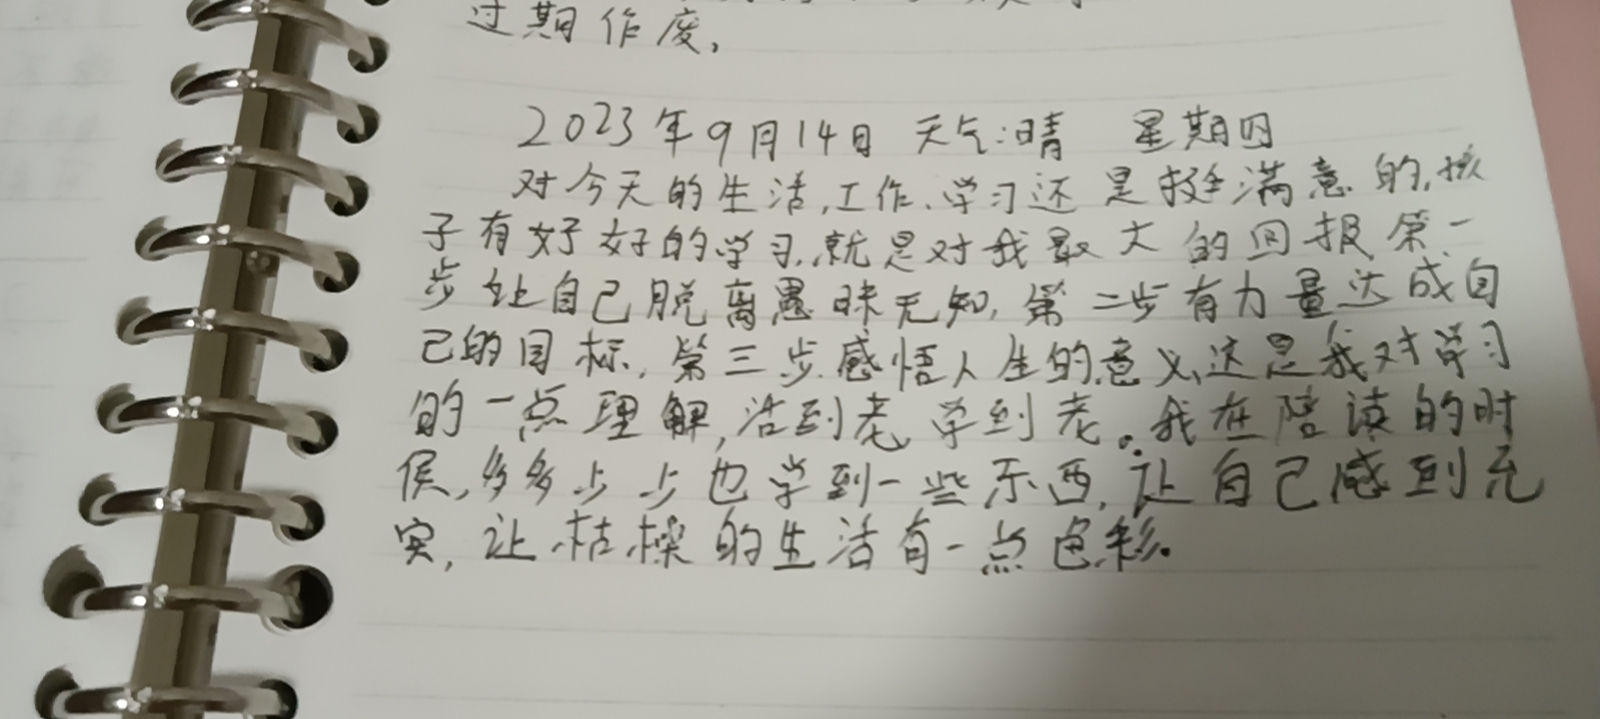 过期作废,
2023年9月14日 天气:晴 星期四
对今天的生活,工作、学习还是挺满意的,孩
子有好好的学习,就是对我最大的回报第一
步让自己脱离愚昧无知,第二步有力量达成自
己的目标,第三步感悟人生的意义,这是我对学习
的一点理解,活到老,学到老。我在陪读的时
侯,多多少少也学到一些东西,让自己感到充
实,让枯橾的生活有一点色彩。